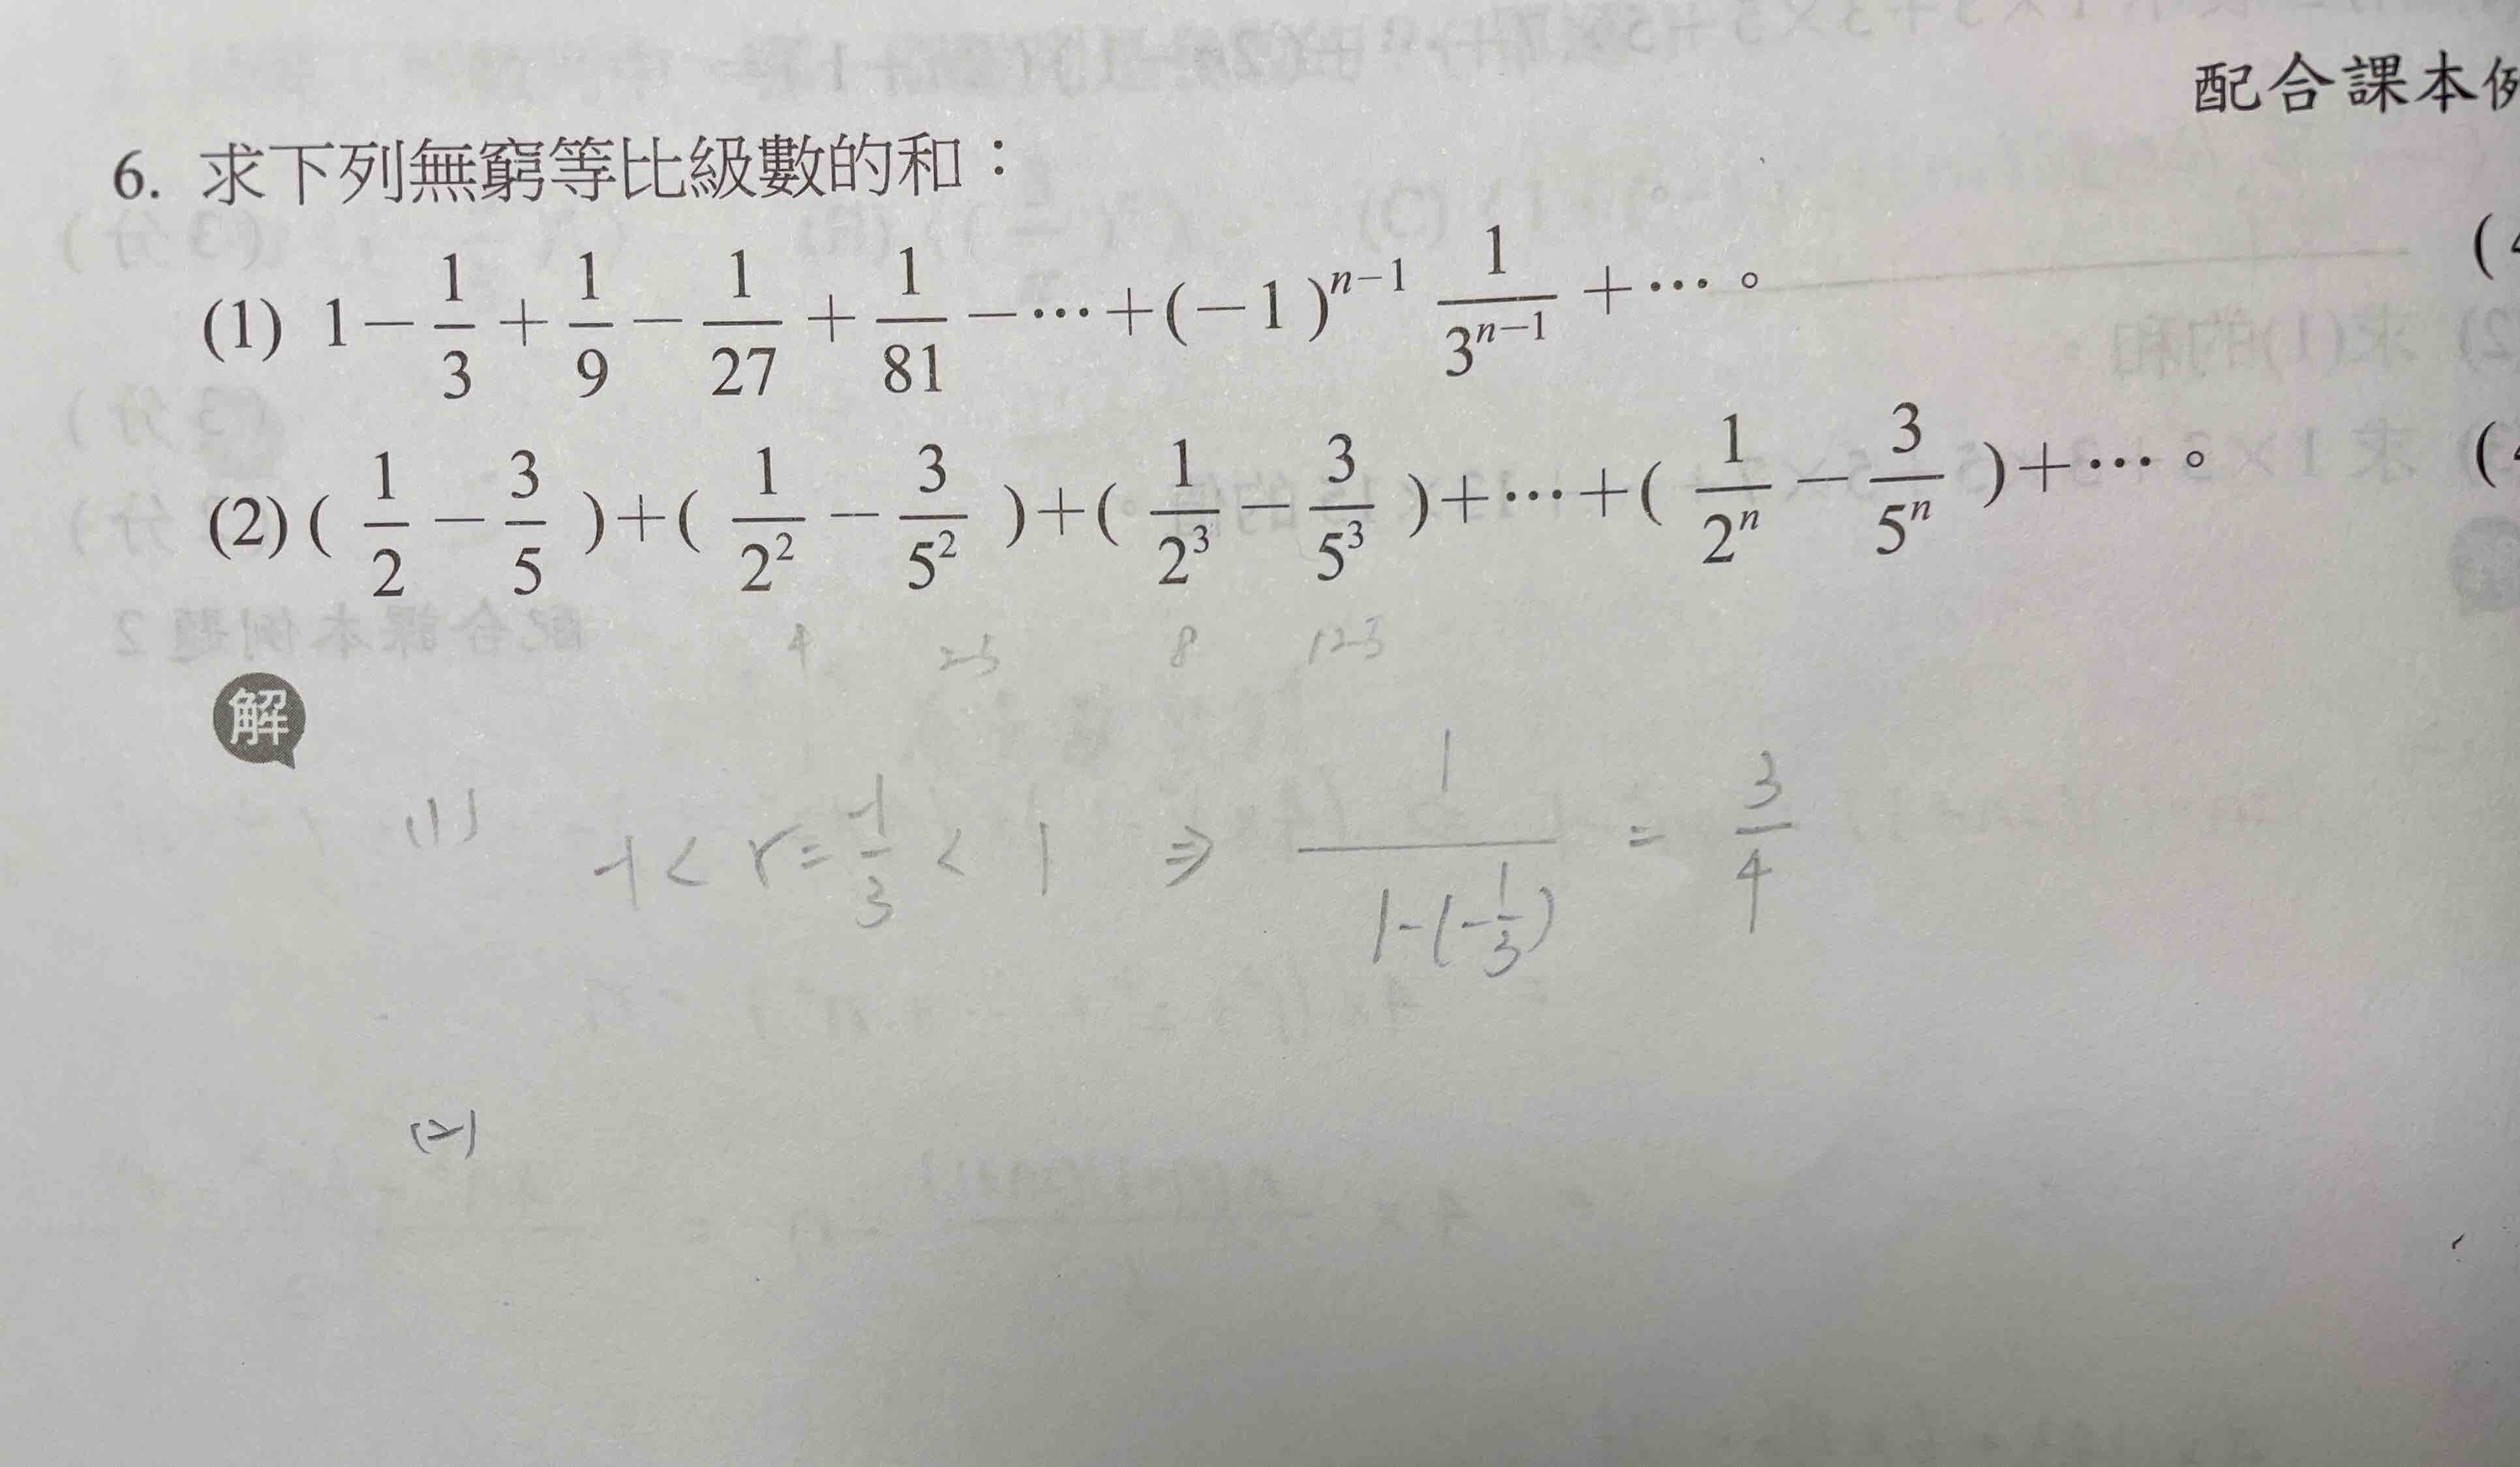 配合課本例
6. 求下列無窮等比級數的和：
(1) 1－1/3＋1/9－1/27＋1/81－⋯＋(－1)^{n－1} 1/3^{n－1}＋⋯。 (
(2) (1/2－3/5)＋(1/2^2－3/5^2)＋(1/2^3－3/5^3)＋⋯＋(1/2^n－3/5^n)＋⋯。 (
4 25 8 125
解
(1) -1 < r = -1/3 < 1 ⇒ 1/(1-(-1/3)) = 3/4
(2)